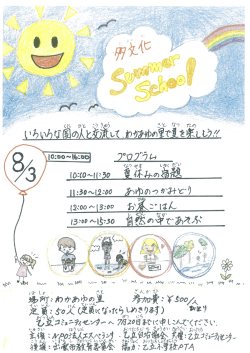 多文化
Summer School
いろいろな国の人と交流して、わかあゆの里で夏を楽しもう!!
8/3
10:00～16:00
プログラム
10:10～11:30 夏休みの宿題
11:30～12:00 あゆのつかみどり
12:00～13:00 お昼ごはん
13:00～15:30 自然の中であそぶ
場所:わかあゆの里 参加費:¥500/ひとり
定員:50人(定員になったらしめきります)
乙立コミュニティセンターへ7月20日までに申しこんでください。
主催:NPO法人エスペランサ 乙立 共催:乙立コミュニティセンター
後援:出雲市教育委員会 協力:乙立小学校PTA